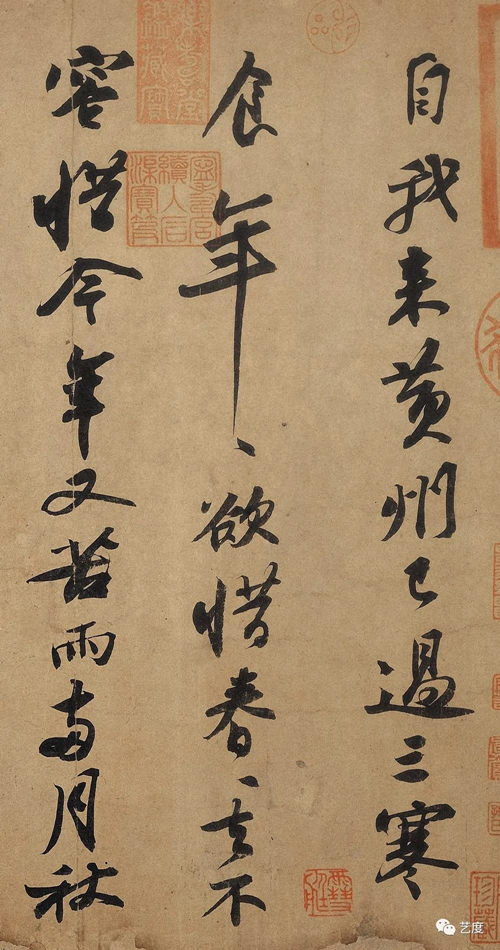 自我来黄州已過三寒
食年〻欲惜春〻去不
容惜今年又苦雨兩月秋
艺度